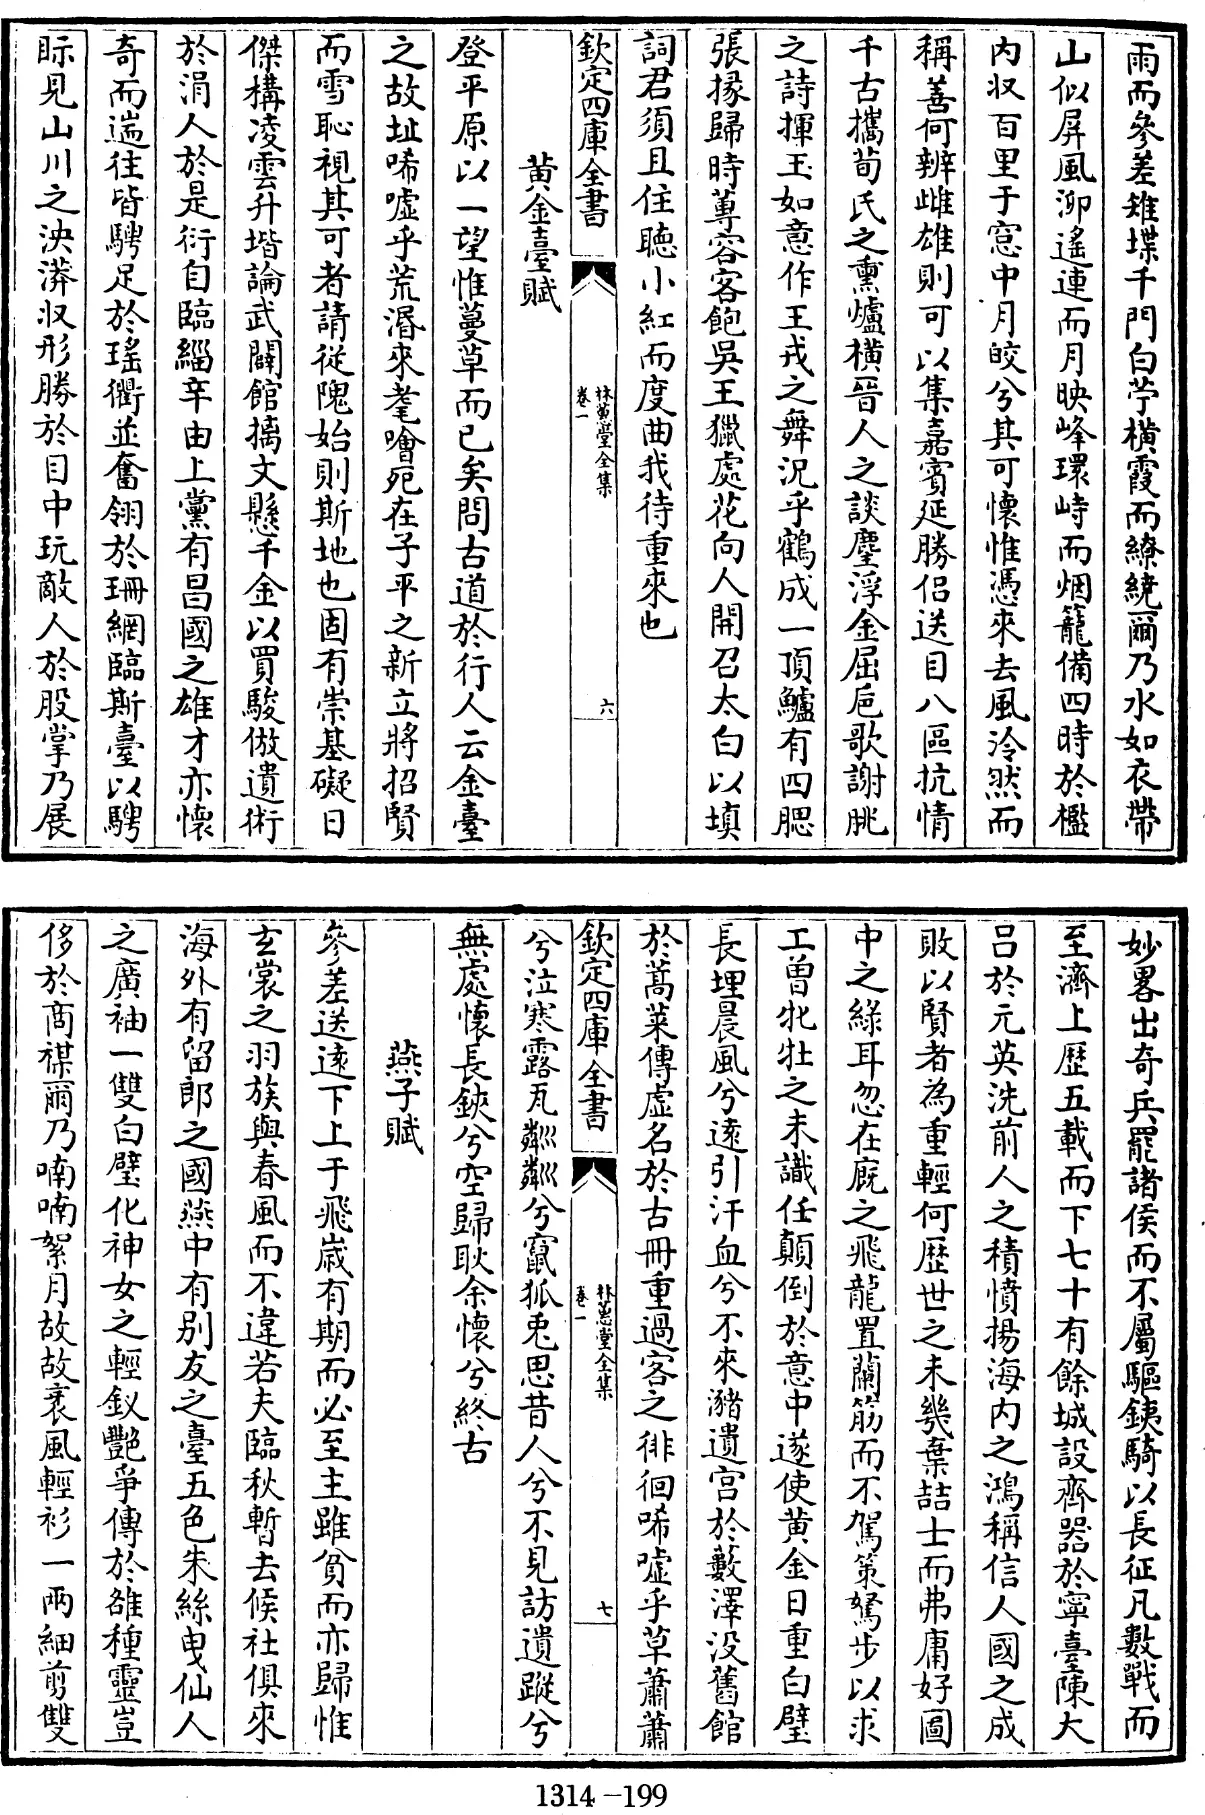 雨而參差雉堞千門白苧橫霞而繚繞爾乃水如衣帶
山似屏風泖遙連而月映峰環峙而烟籠備四時於檻
内収百里于窓中月皎兮其可懷惟憑來去風泠然而
稱善何辨雌雄則可以集嘉賓延勝侣送目八區抗情
千古攜荀氏之熏爐橫晉人之談麈浮金屈巵歌謝朓
之詩揮玉如意作王戎之舞況乎鶴成一頂鱸有四腮
張掾歸時蓴容客飽吳王獵處花向人開召太白以填
詞君須且住聴小紅而度曲我待重來也
欽定四庫全書
林蕙堂全集
卷一
六
黄金臺賦
登平原以一望惟蔓草而已矣問古道於行人云金臺
之故址唏嘘乎荒湣來耄噲宛在子平之新立將招賢
而雪恥視其可者請從隗始則斯地也固有崇基礙日
傑構凌雲升堦論武闢館摛文懸千金以買駿倣遺術
於涓人於是衍自臨緇辛由上黨有昌國之雄才亦懷
奇而遄往皆騁足於瑤衢並奮翎於珊網臨斯臺以騁
眎見山川之泱漭収形勝於目中玩敵人於股掌乃展
妙畧出奇兵罷諸侯而不屬驅銕騎以長征凡數戰而
至濟上歴五載而下七十有餘城設齊器於寧臺陳大
吕於元英洗前人之積憤揚海内之鴻稱信人國之成
敗以賢者為重輕何歴世之未幾棄喆士而弗庸好圖
中之緑耳忽在廐之飛龍置蘭筋而不駕策駑步以求
工曽牝牡之未識任顛倒於意中遂使黄金日重白璧
長埋晨風兮遠引汗血兮不來瀦遺宫於藪澤没舊館
於蒿萊傳虚名於古冊重過客之徘徊唏嘘乎草蕭蕭
欽定四庫全書
林蕙堂全集
卷一
七
兮泣寒露瓦粼粼兮竄狐兎思昔人兮不見訪遺蹤兮
無處懷長鋏兮空歸耿余懷兮終古
燕子賦
參差送逺下上于飛歳有期而必至主雖貧而亦歸惟
玄裳之羽族與春風而不違若夫臨秋暫去候社俱來
海外有留郎之國燕中有别友之臺五色朱絲曳仙人
之廣袖一雙白璧化神女之輕釵艷爭傳於雒種靈豈
侈於商禖爾乃喃喃絮月故故裹風輕衫一兩細剪雙
1314-199